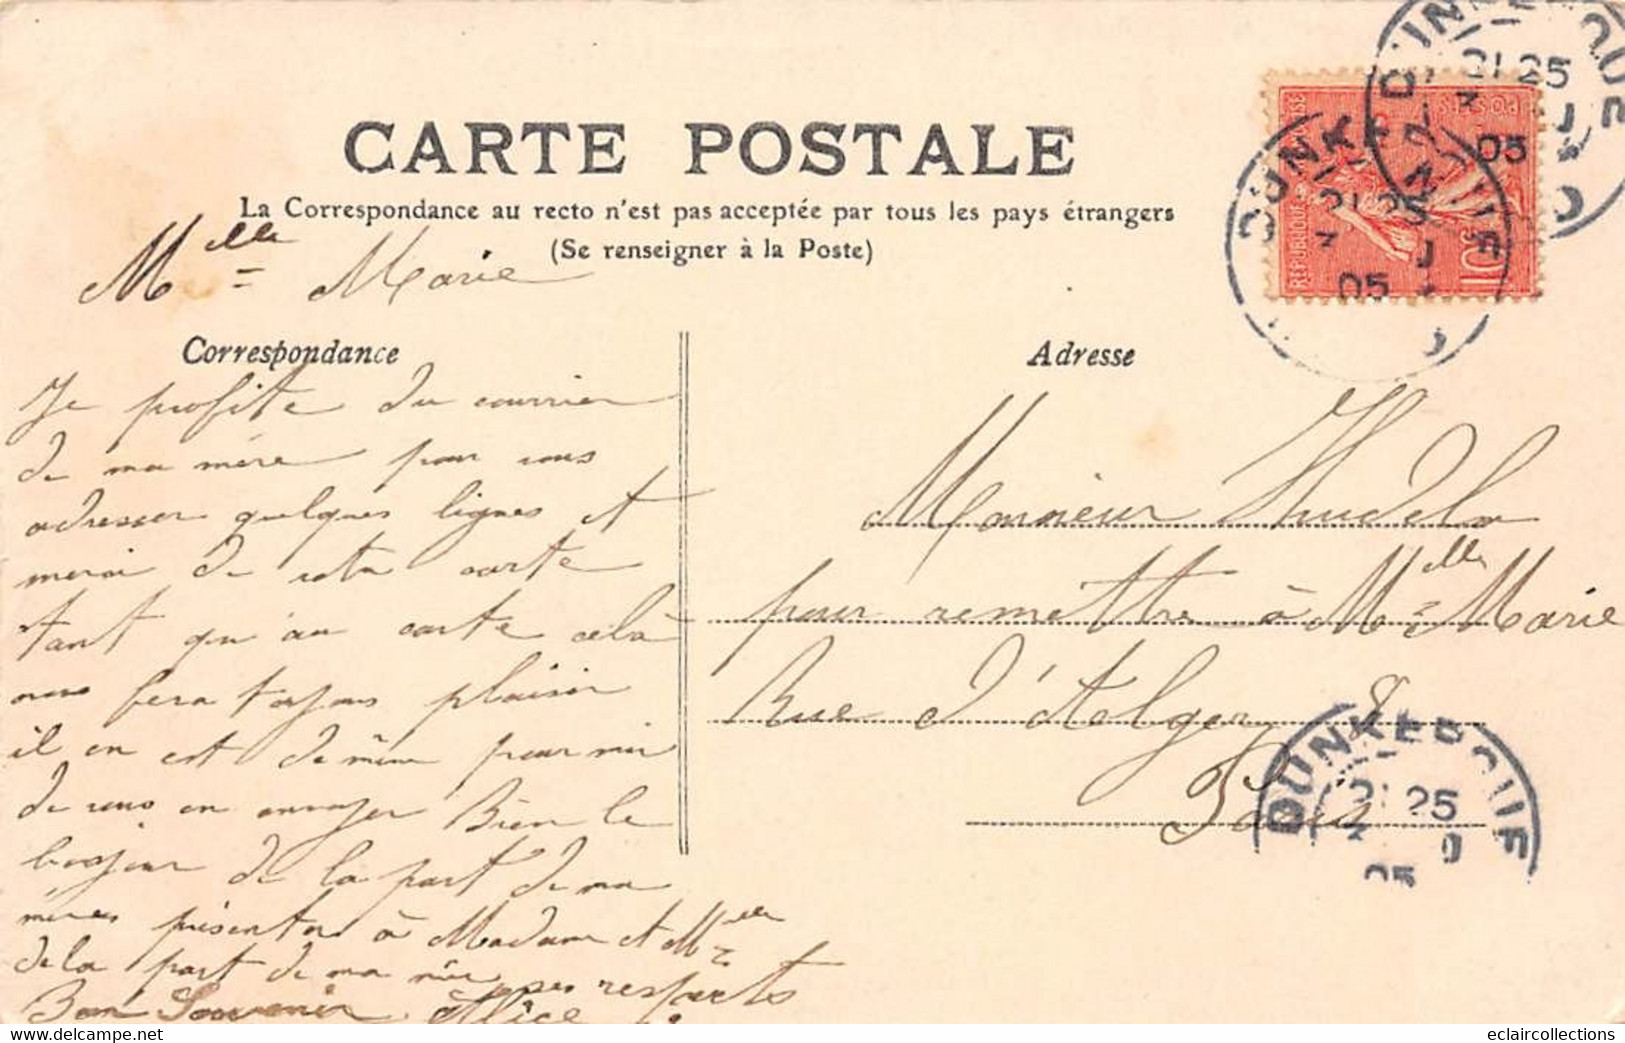 CARTE POSTALE
La Correspondance au recto n'est pas acceptée par tous les pays étrangers
(Se renseigner à la Poste)
Mlle Marie
Correspondance
Je profite du courrier
de ma mère pour vous
adresser quelques lignes et
merci de votre carte
tant qu'au carte celà
nous fera toujours plaisir
il en est de même pour moi
de vous en envoyer Bien le
bonjour de la part de ma
mère présenter à Madame et Mlle
de la part de ma mère ses respects
Bon Souvenir Alice
Adresse
Monsieur
pour remettre à Mlle Marie
Rue d'Alger 8
Paris
DUNKERQUE
21 25
3 J
05
DUNKERQUE
21 25
3 J
05
DUNKERQUE
21 25
3
05
REPUBLIQUE FRANÇAISE
POSTES
10c
www.delcampe.net
eclaircollections